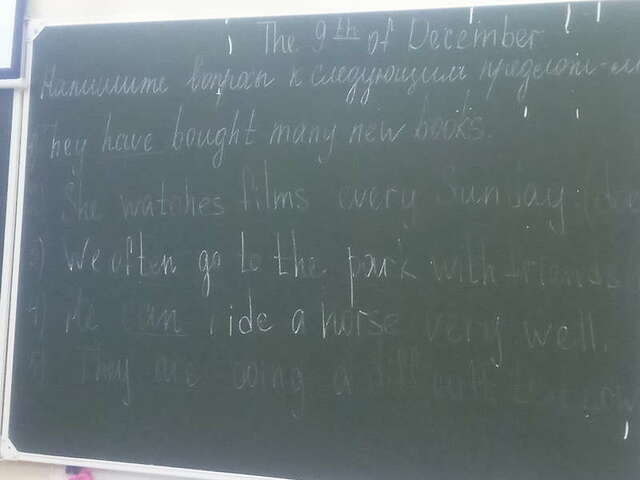 The 9th of December
Напишите вопросы к следующим
They have bought many new books.
She watches films every Sunday
3) We often go to the park with friends
4) He can ride a horse very well.
5) They are doing a difficult